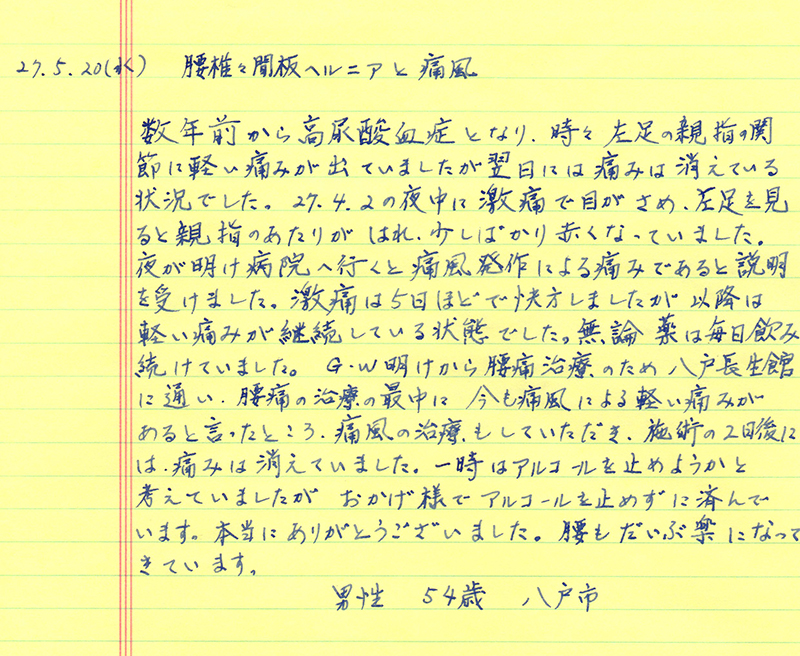 27.5.20(水) 腰椎々間板ヘルニアと痛風
数年前から高尿酸血症となり、時々左足の親指の関
節に軽い痛みが出ていましたが翌日には痛みは消えている
状況でした。27.4.2の夜中に激痛で目がさめ、左足を見
ると親指のあたりがはれ、少しばかり赤くなっていました。
夜が明け病院へ行くと痛風発作による痛みであると説明
を受けました。激痛は5日ほどで快方しましたが以降は
軽い痛みが継続している状態でした。無論薬は毎日飲み
続けていました。G・W明けから腰痛治療のため八戸長生館
に通い、腰痛の治療の最中に今も痛風による軽い痛みが
あると言ったところ、痛風の治療もしていただき、施術の2日後に
は、痛みは消えていました。一時はアルコールを止めようかと
考えていましたがおかげ様でアルコールを止めずに済んで
います。本当にありがとうございました。腰もだいぶ楽になって
きています。
男性 54歳 八戸市